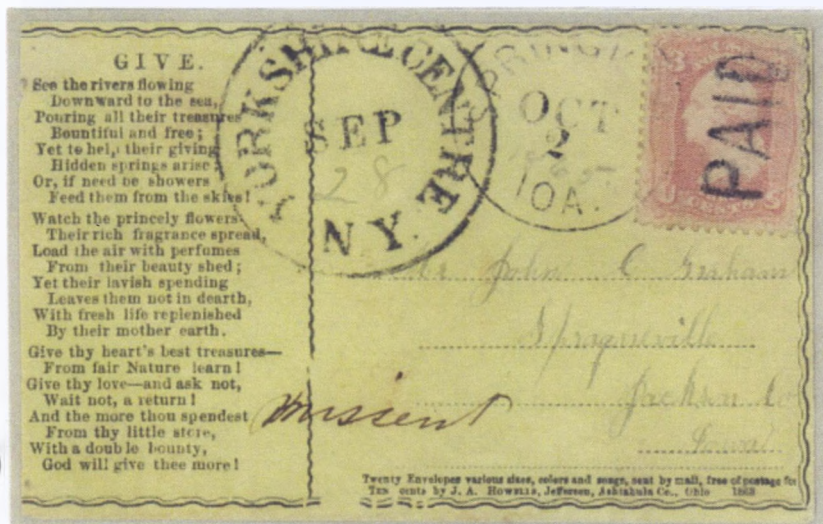 GIVE.
See the rivers flowing
Downward to the sea,
Pouring all their treasures
Bountiful and free;
Yet to help their giving
Hidden springs arise;
Or, if need be showers
Feed them from the skies!
Watch the princely flowers
Their rich fragrance spread,
Load the air with perfumes
From their beauty shed;
Yet their lavish spending
Leaves them not in dearth,
With fresh life replenished
By their mother earth.
Give thy heart's best treasures—
From fair Nature learn!
Give thy love—and ask not,
Wait not, a return!
And the more thou spendest
From thy little store,
With a double bounty,
God will give thee more!
YORKSHIRE CENTRE
SEP
28
N.Y.
OCT
2
IOA.
3
PAID
CENTS
John C
Spragueville
Jackson Co
Iowa
missent
Twenty Envelopes various sizes, colors and songs, sent by mail, free of postage for
Ten cents by J. A. Howells, Jefferson, Ashtabula Co., Ohio 1863